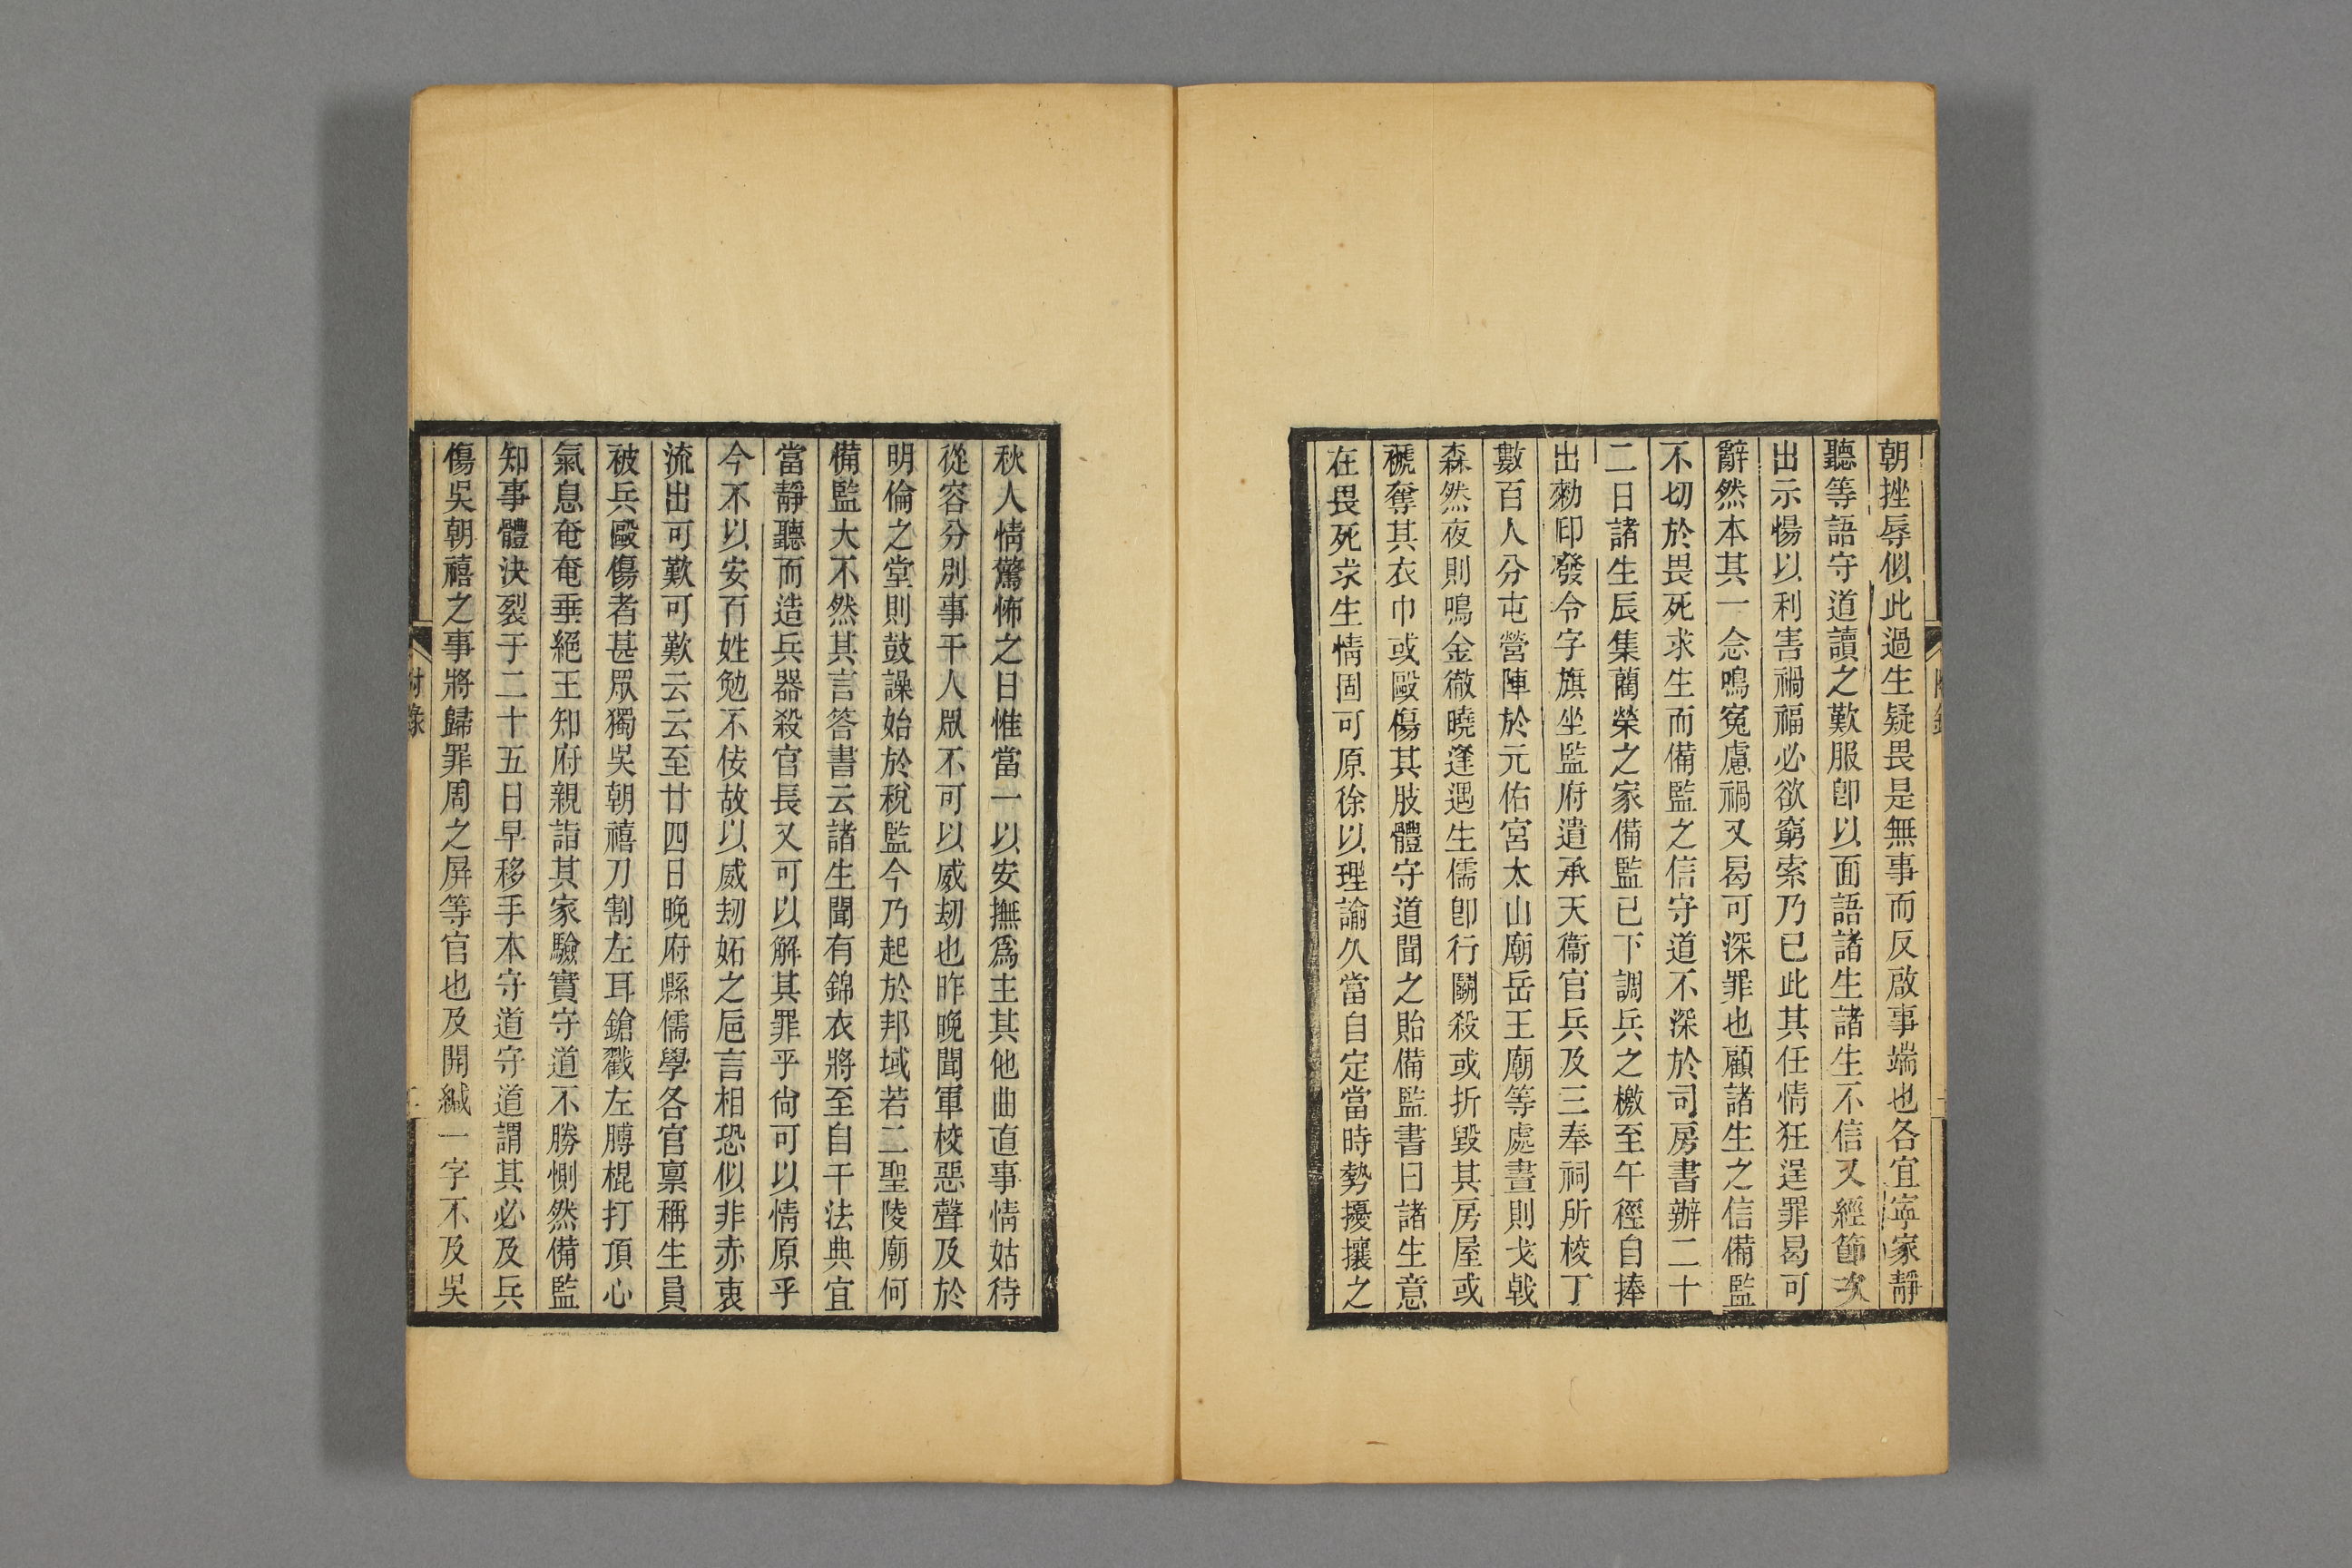 朝挫辱似此過生疑畏是無事而反啟事端也各宜寧家靜
聽等語守道讀之歎服卽以面語諸生諸生不信又經節次
出示愓以利害禍福必欲窮索乃已此其任情狂逞罪曷可
辭然本其一念鳴寃慮禍又曷可深罪也顧諸生之信備監
不切於畏死求生而備監之信守道不深於司房書辦二十
二日諸生辰集藺榮之家備監已下調兵之檄至午徑自捧
出勑印發令字旗坐監府遣承天衞官兵及三奉祠所校丁
數百人分屯營陣於元佑宮太山廟岳王廟等處晝則戈戟
森然夜則鳴金徹曉逢遇生儒卽行鬬殺或折毀其房屋或
褫奪其衣巾或毆傷其肢體守道聞之貽備監書曰諸生意
在畏死求生情固可原徐以理諭久當自定當時勢擾攘之
秋人情驚怖之日惟當一以安撫爲主其他曲直事情姑待
從容分別事干人眾不可以威刼也昨晚聞軍校惡聲及於
明倫之堂則鼓譟始於稅監今乃起於邦域若二聖陵廟何
備監大不然其言答書云諸生聞有錦衣將至自干法典宜
當靜聽而造兵器殺官長又可以解其罪乎尙可以情原乎
今不以安百姓勉不佞故以威刼妬之巵言相恐似非赤衷
流出可歎可歎云云至廿四日晚府縣儒學各官禀稱生員
被兵毆傷者甚眾獨吳朝禧刀割左耳鎗戳左膊棍打頂心
氣息奄奄垂絕王知府親詣其家驗實守道不勝惻然備監
知事體決裂于二十五日早移手本守道守道謂其必及兵
傷吳朝禧之事將歸罪周之屏等官也及開緘一字不及吳
附錄